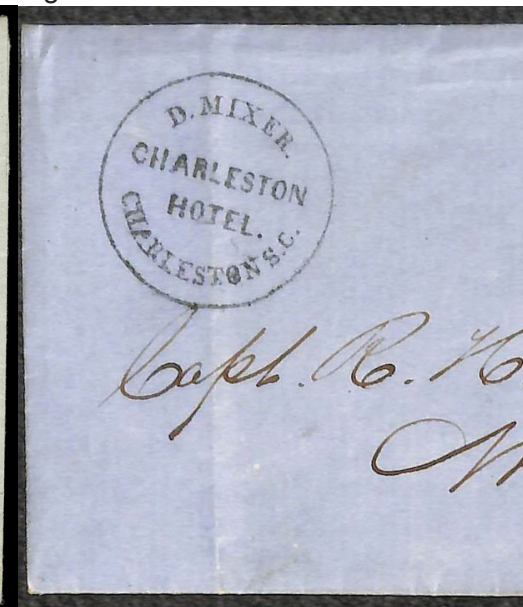 D. MIXER.
CHARLESTON
HOTEL.
CHARLESTON S.C.
Capt. R. H